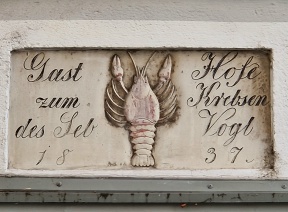 Gast Hofe
zum Krebsen
des Seb Vogt
18 37.